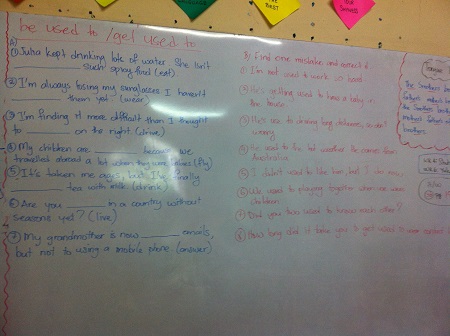 be used to / get used to
A)
① Julia kept drinking lots of water. She isn't
_______ such spicy food (eat)
② I'm always losing my sunglasses I haven't
_______ them yet. (wear)
③ I'm finding it more difficult than I thought
to _______ on the right (drive)
④ My children are _______ because we
travelled abroad a lot when they were babies (fly)
⑤ It's taken me ages, but I'm finally
_______ tea with milk. (drink)
⑥ Are you _______ in a country without
seasons yet? (live)
⑦ My grandmother is now _______ emails,
but not to using a mobile phone. (answer)
B) Find one mistake and correct it
① I'm not used to work so hard
② He's getting used to have a baby in
the house.
③ He's use to driving long distances, so don't
worry
④ used to hot weather he comes from
Australia
⑤ I didn't used to like him, but I do now
⑥ We used to playing together when we were
children.
⑦ Did you two used to know each other?
⑧ How long did it take you to get used to wear
The